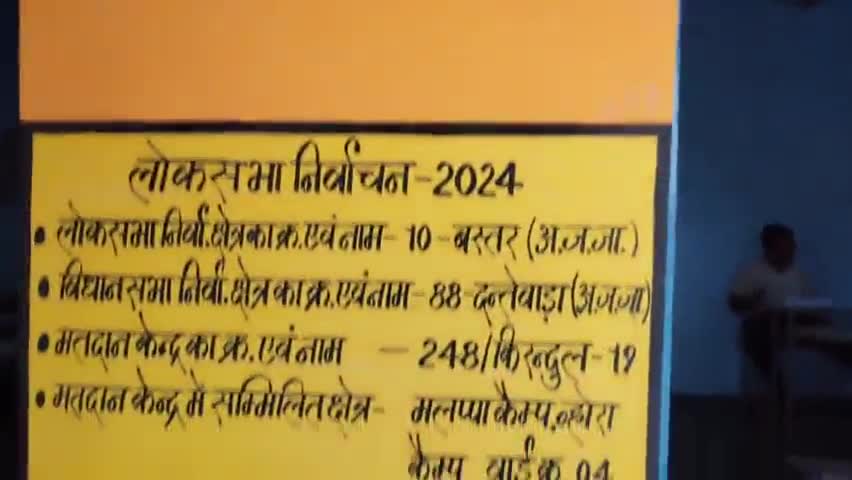 लोकसभा निर्वाचन-2024
• लोकसभा निर्वा.क्षेत्र का क्र.एवं नाम- 10-बस्तर (अ.ज.जा.)
• विधानसभा निर्वा.क्षेत्र का क्र.एवं नाम-88-दन्तेवाड़ा(अ.ज.जा)
• मतदान केन्द्र का क्र.एवं नाम - 248/किरन्दुल-19
• मतदान केन्द्र में सम्मिलित क्षेत्र- मलप्पा कैम्प,
कैम्प वार्ड क्र 04